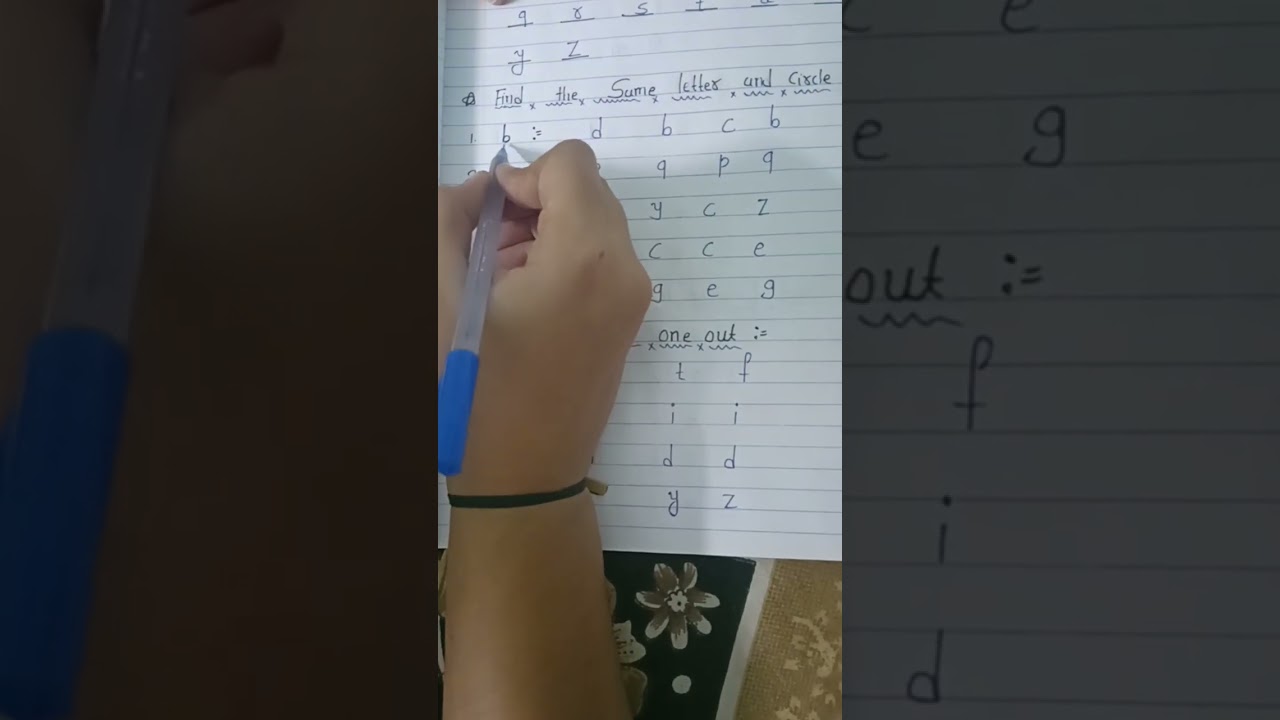 q r s t u
y z
Find the Same letter and Circle
1. b := d b c b
q p q
y c z
c c e
g e g
one out :=
t f
i i
d d
y z